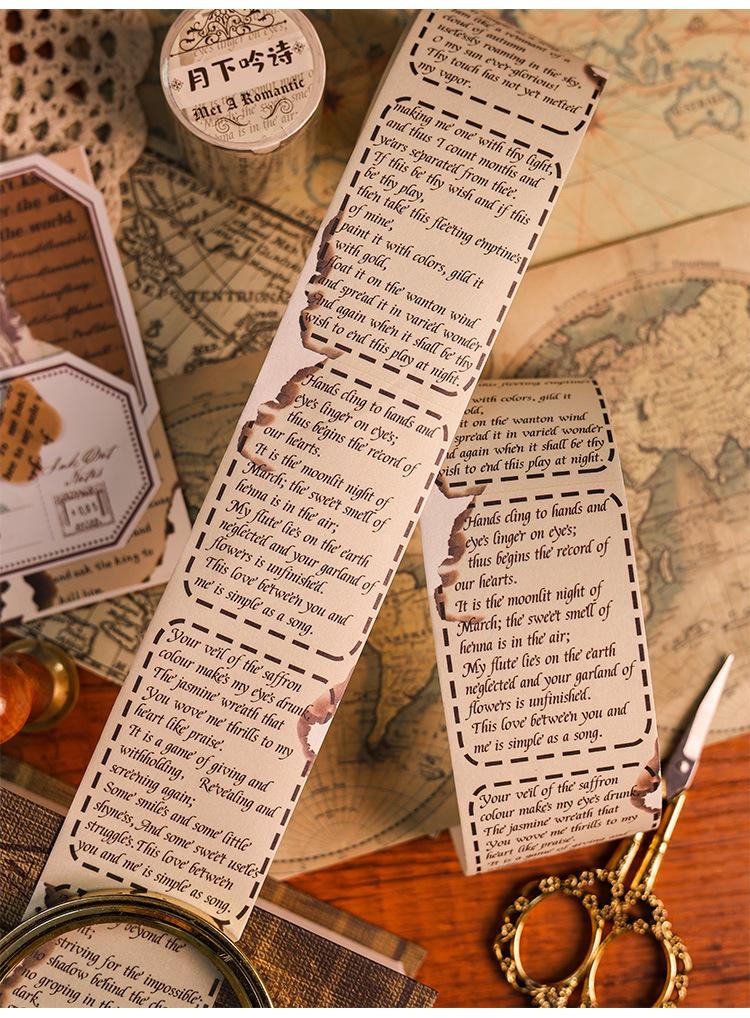 月下吟诗
Met A Romantic
cloud of autumn
uselessly roaming in the sky.
O my sun ever-glorious!
Thy touch has not yet melted
my vapor.
making me one with thy light,
and thus I count months and
years separated from thee.
If this be thy wish and if this
be thy play,
then take this fleeting emptines
of mine,
paint it with colors, gild it
with gold,
float it on the wanton wind
and spread it in varied wonder
And again when it shall be thy
wish to end this play at night.
Hands cling to hands and
eyes linger on eyes;
thus begins the record of
our hearts.
It is the moonlit night of
March; the sweet smell of
henna is in the air;
My flute lies on the earth
neglected and your garland of
flowers is unfinished.
This love between you and
me is simple as a song.
Your veil of the saffron
colour makes my eyes drunk
The jasmine wreath that
You wove me thrills to my
heart like praise.
It is a game of giving and
withholding, Revealing and
screening again;
Some smiles and some little
shyness, And some sweet useles
struggles. This love between
you and me is simple as song.
beyond the
striving for the impossible;
no shadow behind the
no groping in
dark.
with colors, gild it
it on the wanton wind
spread it in varied wonder
again when it shall be thy
wish to end this play at night.
Hands cling to hands and
eyes linger on eyes;
thus begins the record of
our hearts.
It is the moonlit night of
March; the sweet smell of
henna is in the air;
My flute lies on the earth
neglected and your garland of
flowers is unfinished.
This love between you and
me is simple as a song.
Your veil of the saffron
colour makes my eyes drunk
The jasmine wreath that
You wove me thrills to my
heart like praise.
the world.
Notes
ask the king to
TENTRION